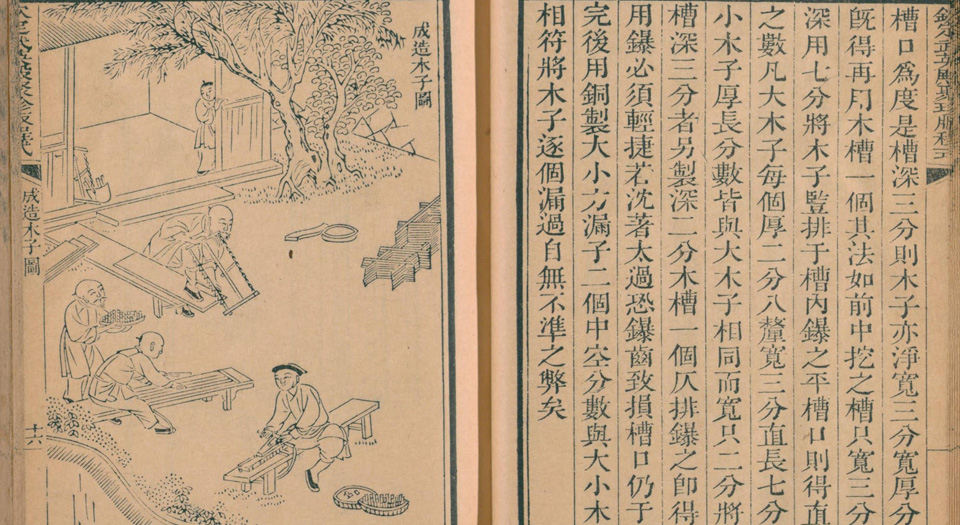 欽定武英殿聚珍版程式
槽口為度是槽深三分則木子亦淨寬三分寬厚分
既得再用木槽一個其法如前中挖之槽只寬三分
深用七分將木子豎排于槽內鑤之平槽口則得直
之數凡大木子每個厚二分八釐寬三分直長七分
小木子厚長分數皆與大木子相同而寬只二分將
槽深三分者另製深二分木槽一個仄排鑤之卽得
用鑤必須輕捷若沈著太過恐鑤齒致損槽口仍于
完後用銅製大小方漏子二個中空分數與大小木
相符將木子逐個漏過自無不準之弊矣
成造木子圖
成造木子圖
十六